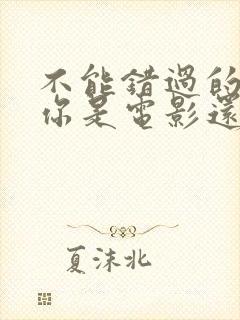 不能錯過的
你是電影還
夏沫北